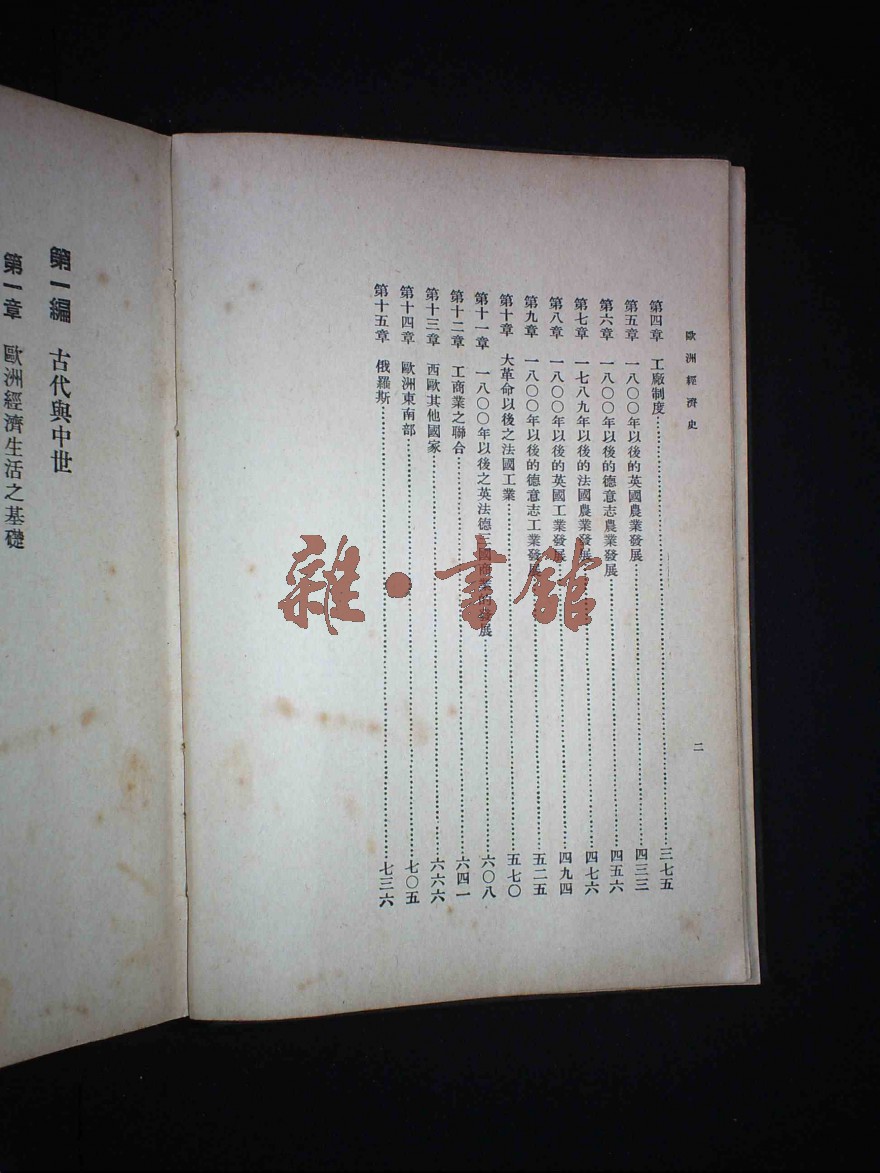 歐洲經濟史
二
第四章 工廠制度……三七五
第五章 一八〇〇年以後的英國農業發展……四三三
第六章 一八〇〇年以後的德意志農業發展……四五六
第七章 一七八九年以後的法國農業發展……四七六
第八章 一八〇〇年以後的英國工業發展……四九四
第九章 一八〇〇年以後的德意志工業發展……五二五
第十章 大革命以後之法國工業……五七〇
第十一章 一八〇〇年以後之英法德三國商業的發展……六〇八
第十二章 工商業之聯合……六四一
第十三章 西歐其他國家……六六六
第十四章 歐洲東南部……七〇五
第十五章 俄羅斯……七三六
第一編 古代與中世
第一章 歐洲經濟生活之基礎
雜·書館